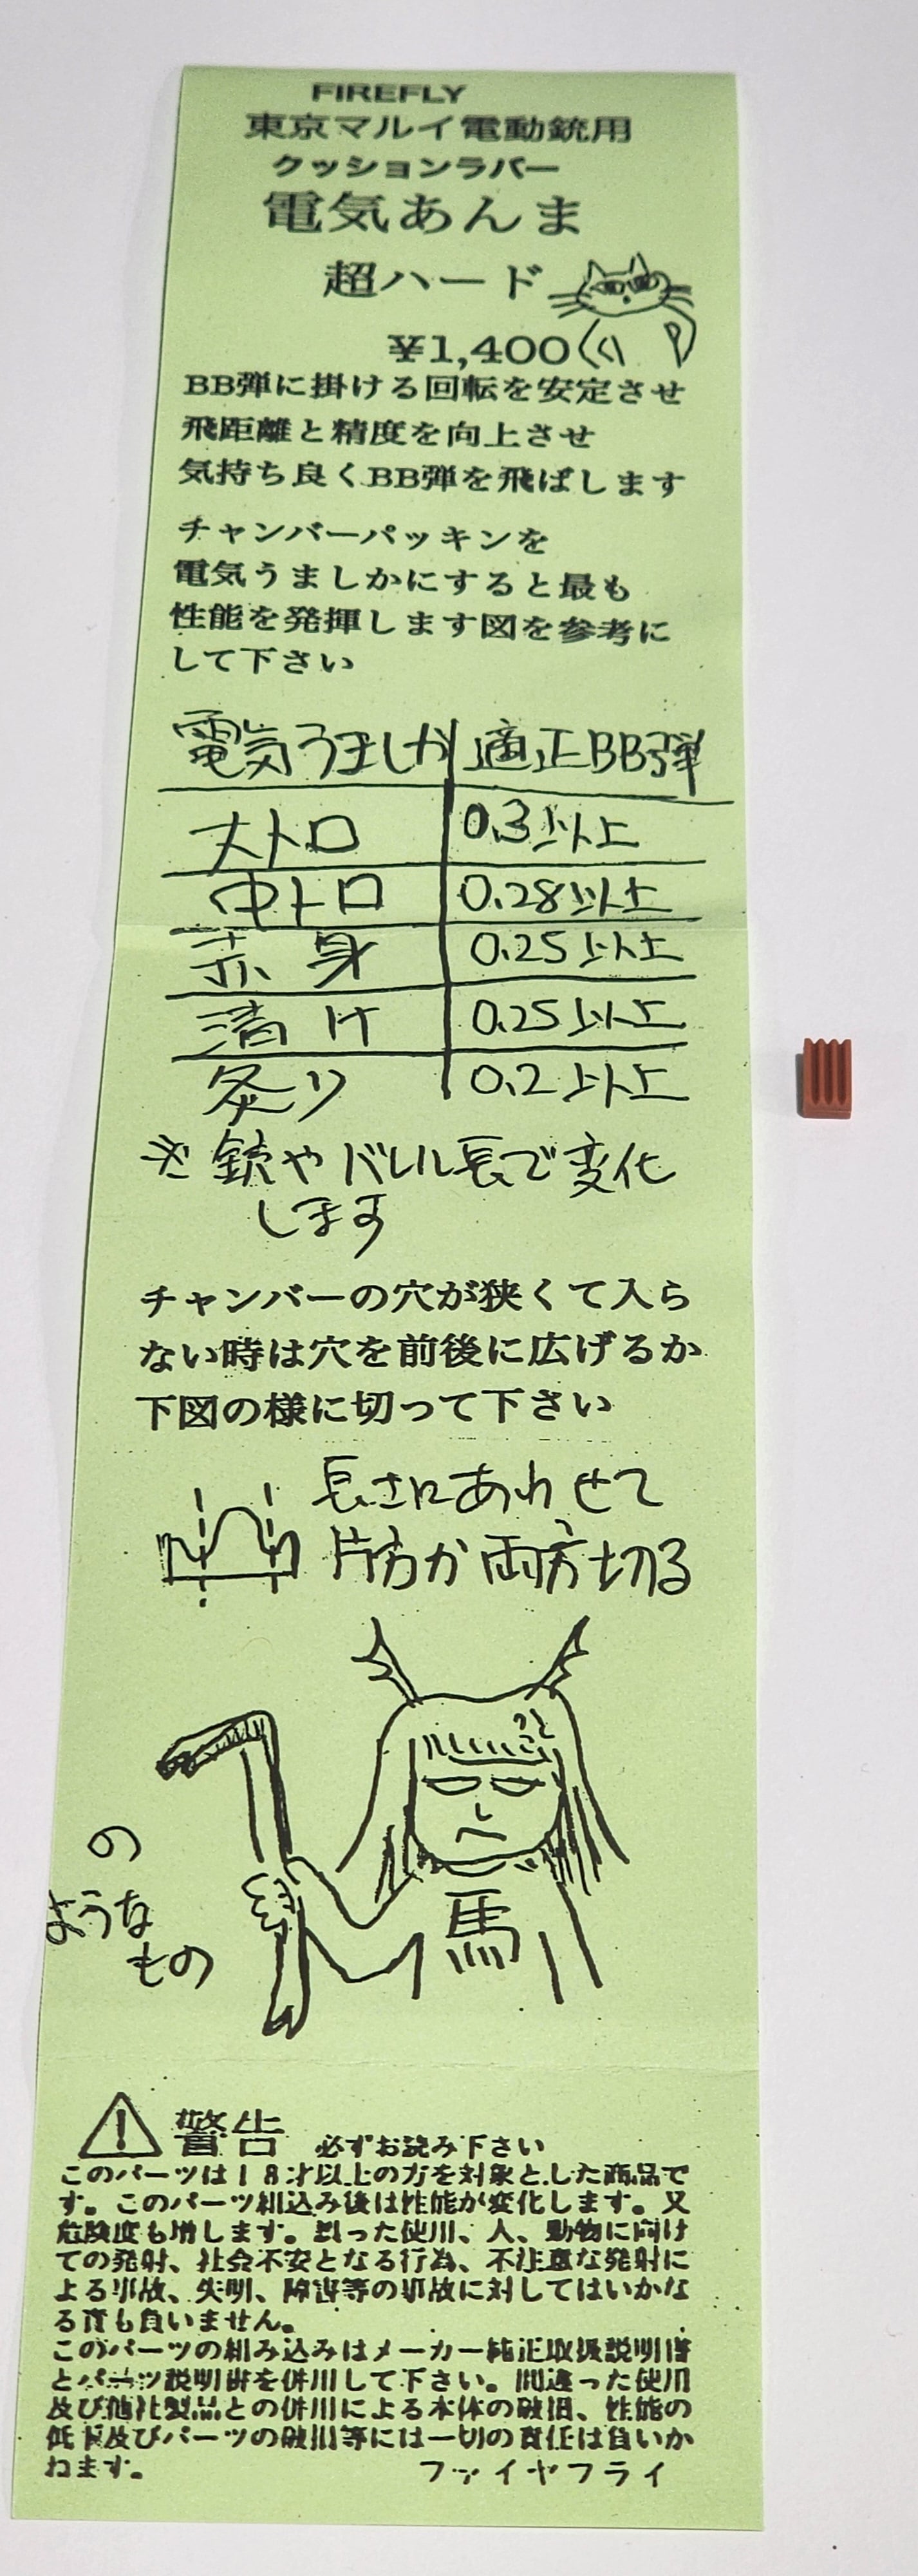 FIREFLY
東京マルイ電動銃用
クッションラバー
電気あんま
超ハード
¥1,400
BB弾に掛ける回転を安定させ
飛距離と精度を向上させ
気持ち良くBB弾を飛ばします
チャンバーパッキンを
電気うましかにすると最も
性能を発揮します図を参考に
して下さい
電気うましか 適正BB弾
大トロ 0.3以上
中トロ 0.28以上
赤身 0.25以上
漬け 0.25以上
炙り 0.2以上
※銃やバレル長で変化
します
チャンバーの穴が狭くて入ら
ない時は穴を前後に広げるか
下図の様に切って下さい
長さにあわせて
片方か両方切る
の
ような
もの
馬
警告 必ずお読み下さい
このパーツは18才以上の方を対象とした商品で
す。このパーツ組込み後は性能が変化します。又
危険度も増します。誤った使用、人、動物に向け
ての発射、社会不安となる行為、不注意な発射に
よる事故、失明、障害等の事故に対してはいかな
る責も負いません。
このパーツの組み込みはメーカー純正取扱説明書
とパーツ説明書を併用して下さい。間違った使用
及び他社製品との併用による本体の破損、性能の
低下及びパーツの破損等には一切の責任は負いか
ねます。
ファイヤフライ